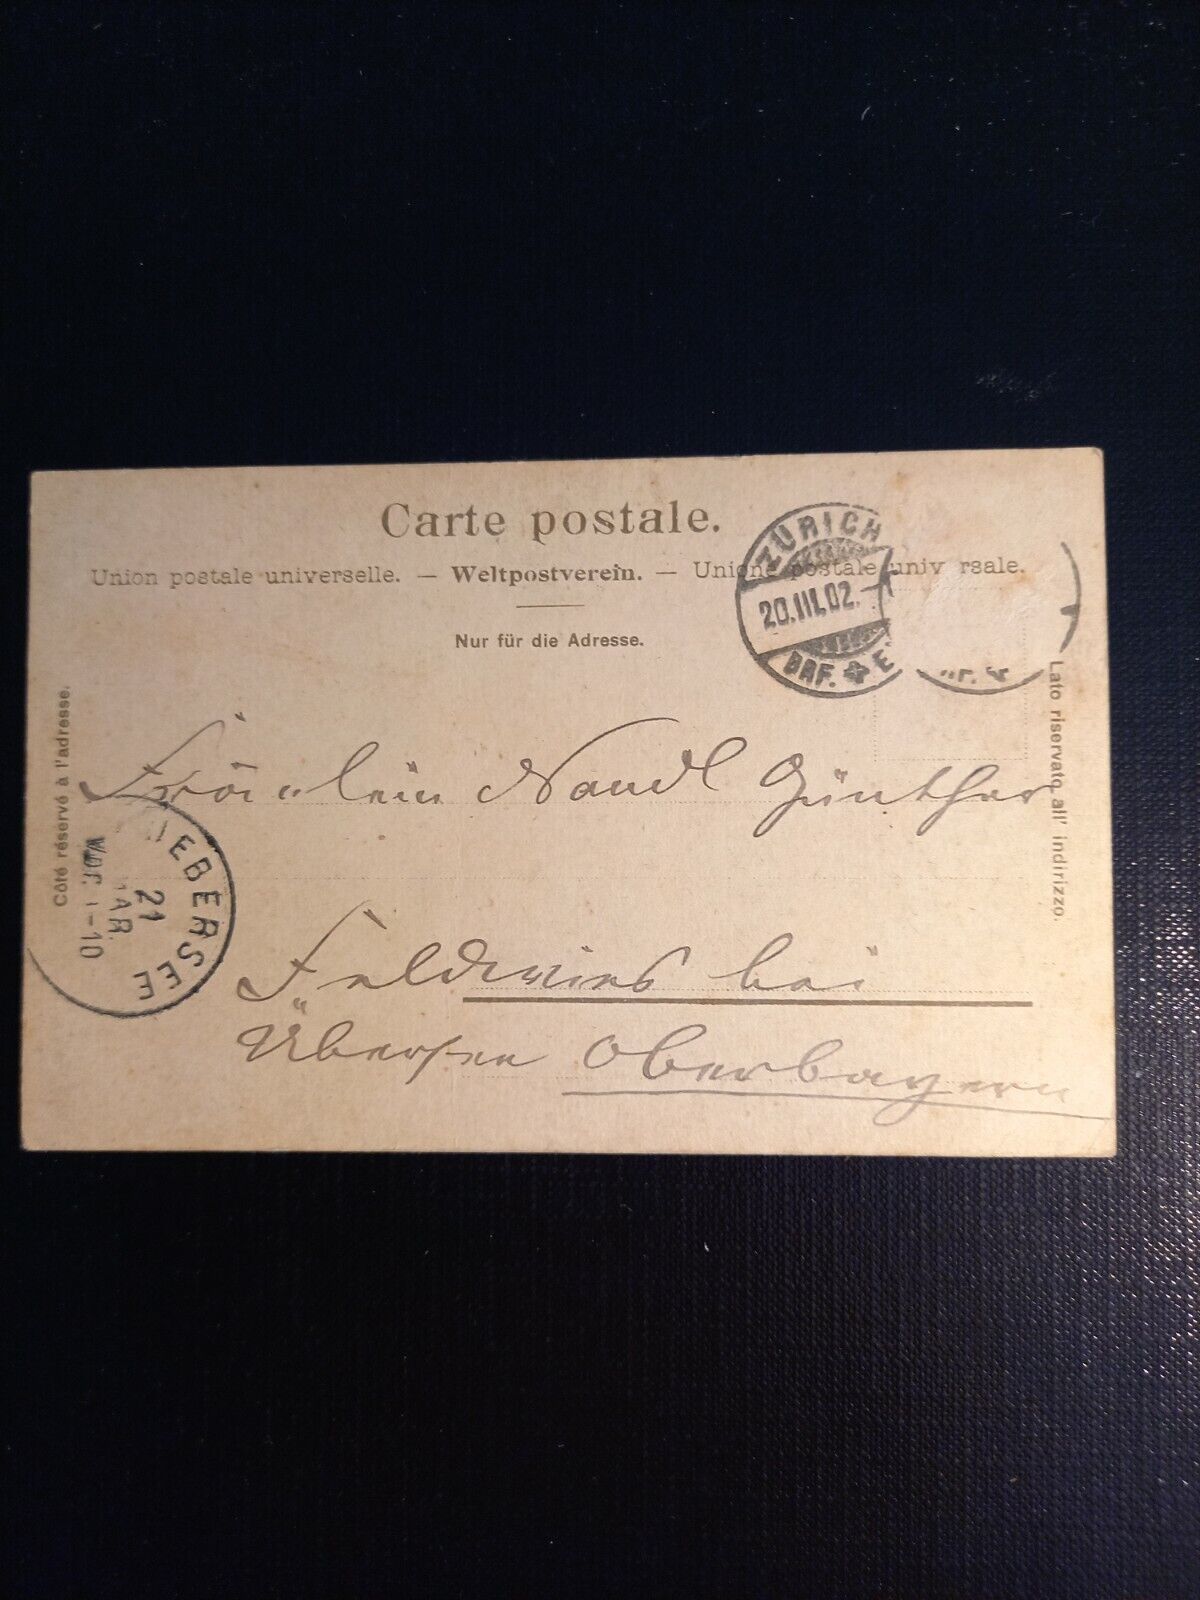 Carte postale.
Union postale universelle. — Weltpostverein. — Unione postale univ rsale.
Nur für die Adresse.
ZÜRICH
20.III.02.
BRF. E
Côté réservé à l'adresse.
Lato riservato all' indirizzo.
Fräulein Nandl Günther
UEBERSEE
21
MAR.
1-10
Feldwies bei
Übersee Oberbayern